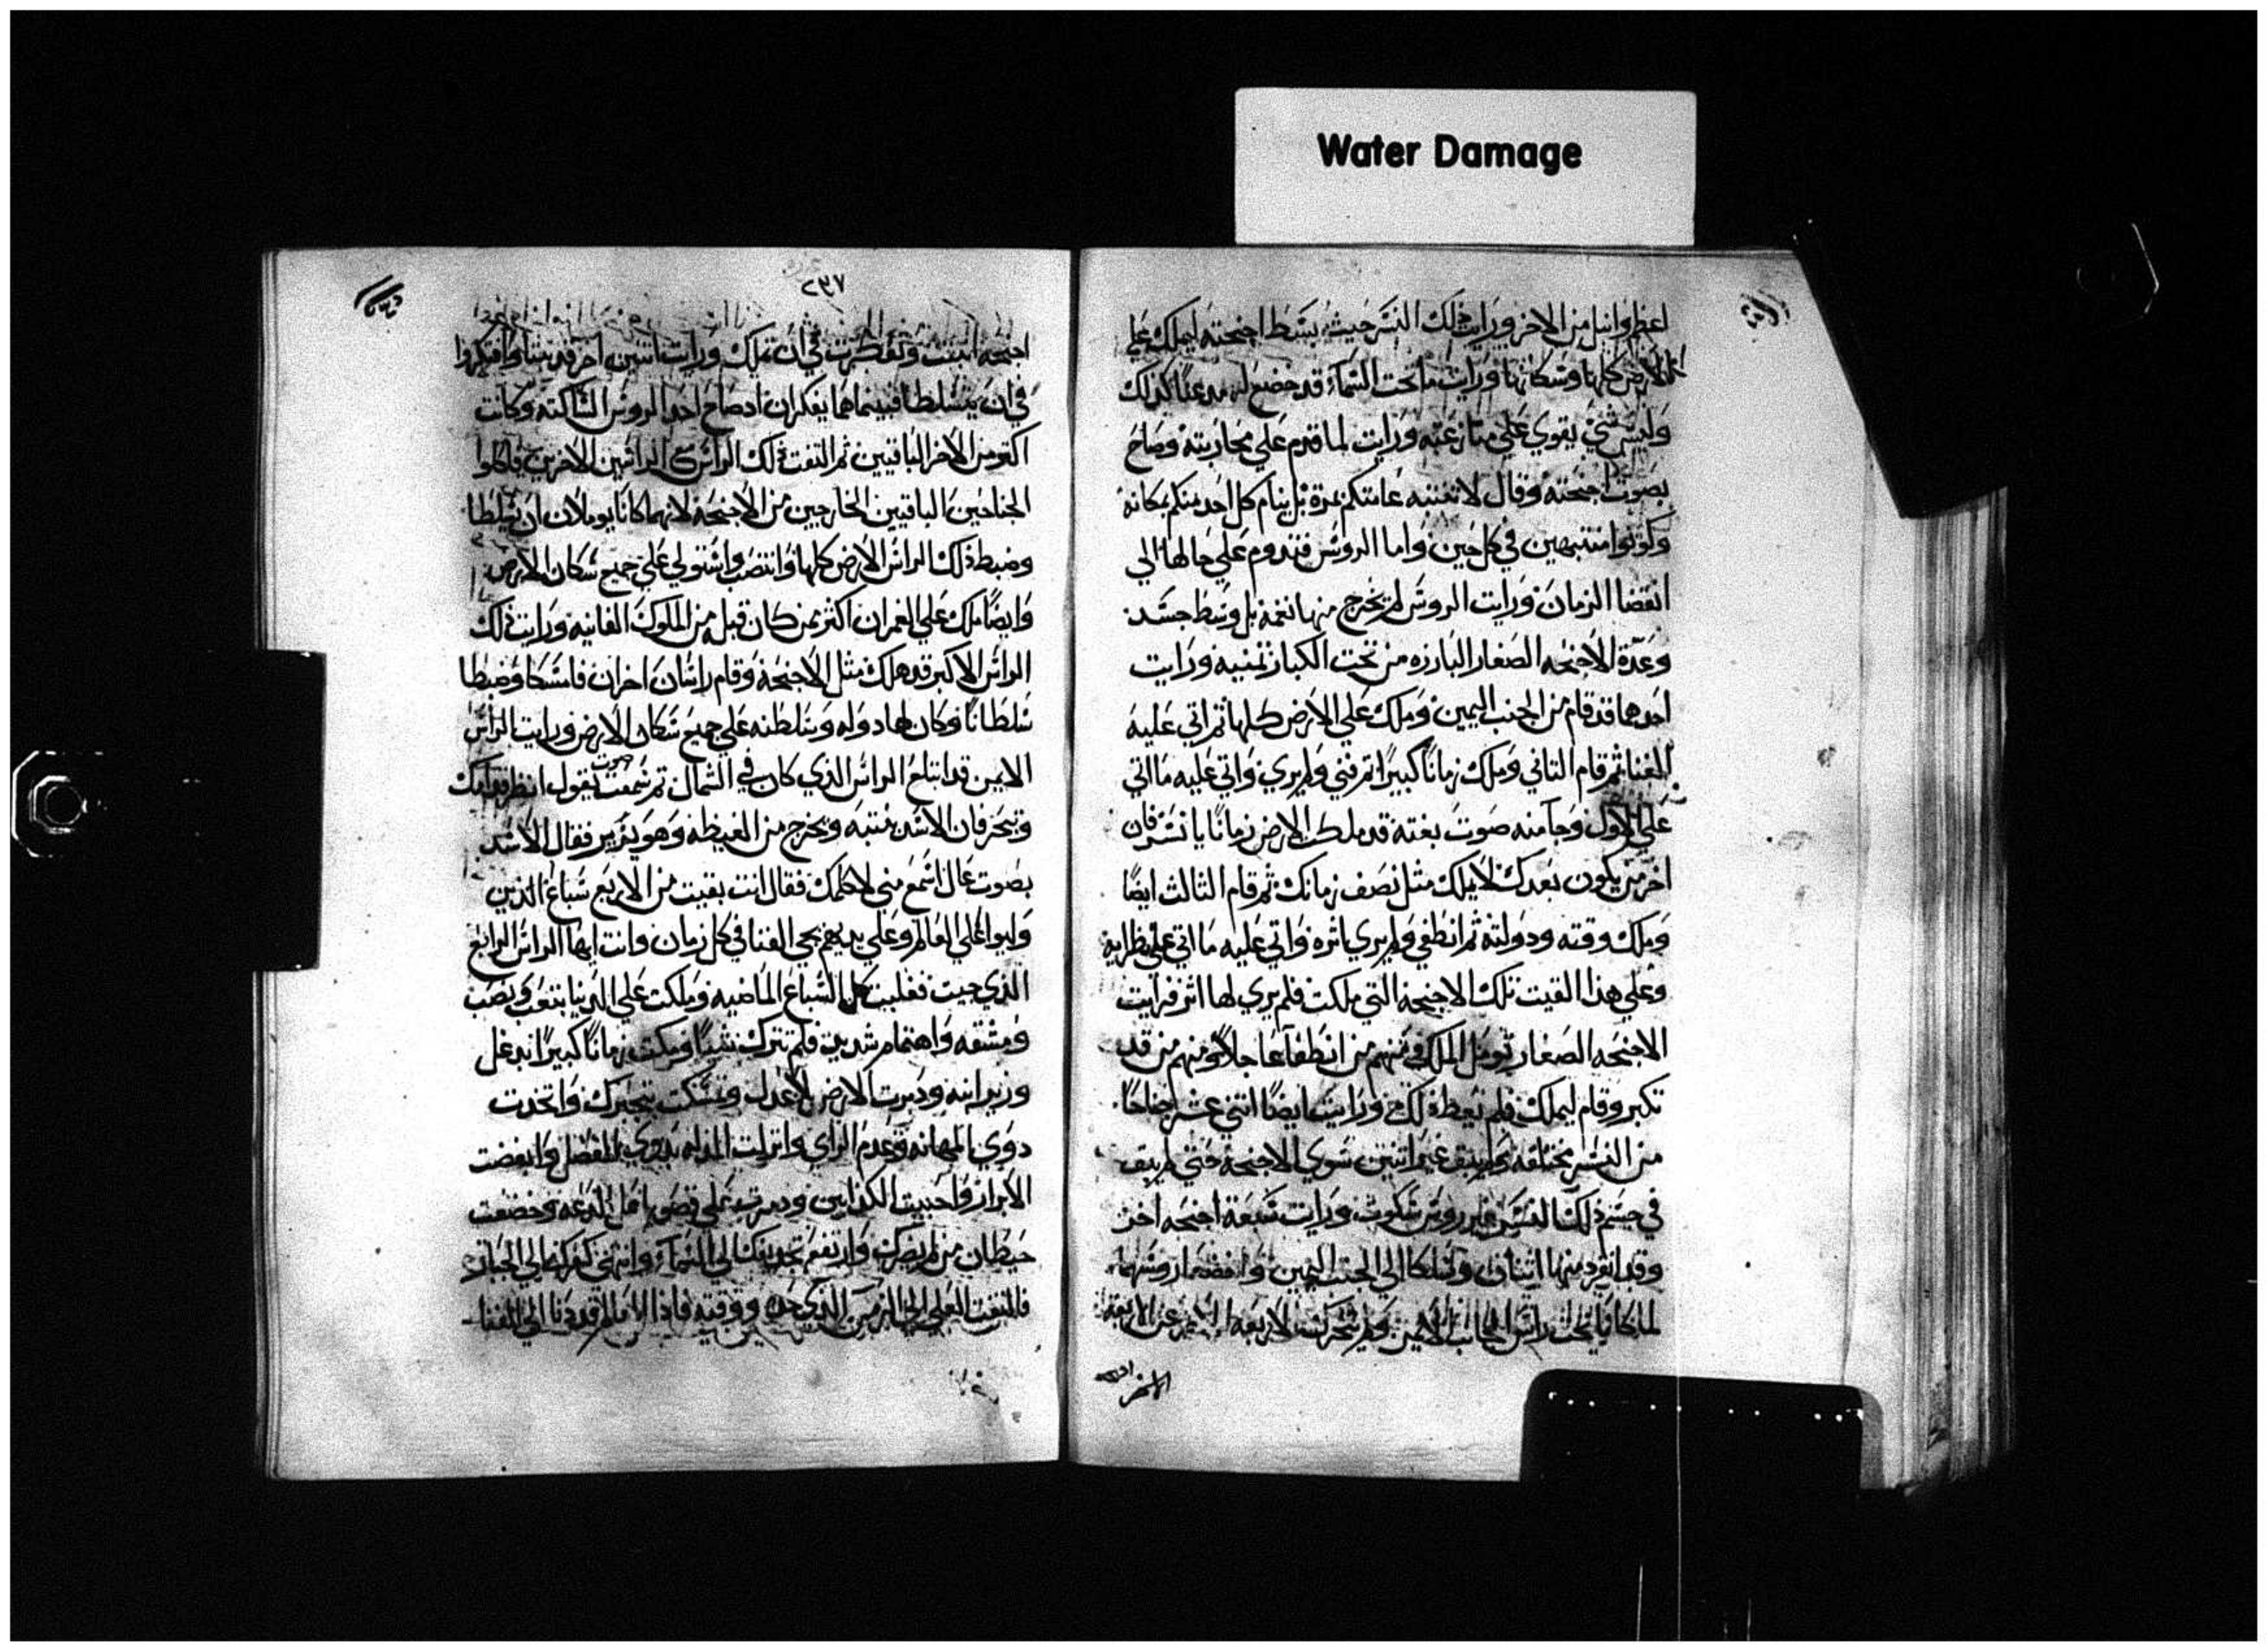 Water Damage
اعظم وانبل من الاخر ورايت ذلك النسر حيث بسط اجنحته ليملك علي
الارض كلها وسكانها ورايت ما تحت السماء قد خضع له
وليس شي يقوي علي منازعته ورايت لما قدم علي محاربته وصاح
بصوت اجنحته وقال لا تنتبه عامتكم بمرة بل ينام كل احد منكم بمكانه
وكونوا منتبهين في كل حين واما الروس فتدوم علي حالها الي
انقضا الزمان ورايت الروس لم يخرج منها نغمة بل وسط جسده
وعدة الاجنحه الصغار البارزه من تحت الكبار ثمنيه ورايت
احدهما قد قام من الجنب اليمين وملك علي الارض كلها ثم اتي عليه
الفنا ثم قام التاني وملك زمانًا كبيرًا ثم فني ولم يري واتي عليه ما اتي
علي الاول وجا منه صوت بغتة قد ملكت الارض زمانًا يا نسر فان
اخر من يكون بعدك لا يملك مثل نصف زمانك ثم قام التالت ايضًا
وملك وقته ودولته ثم انطفي ولم يري اثره واتي عليه ما اتي علي نظرايه
وعلي هذا القيت تلك الاجنحة التي ملكت فلم يري لها اثر فرايت
الاجنحه الصغار تومل الملك فمنهم من انطفا عاجلاً ومنهم من قد
تكبر وقام ليملك فلم تعط ذلك ورايت ايضًا اتني عشر جناحًا
من النسر مختلفه ولم يبق غير اتنين سوي الاجنحة حتي لم يبق
في جسم ذلك النسر غير روس سكوت ورايت سبعة اجنحه اخر
وقد انفرد منها اتنان وسلكا الي الجنب اليمين واخفضا روسهما
لما كانا تحت راس الجانب الايمن ولم تتحرك الاربعه
٢٣٧
اجنحه وتفكرت في ان تملك ورايت اتنين اخر قد بتتا وافكروا
في ان يتسلطا فبينما هما يفكران اد صاح احد الروس الساكته وكانت
اكبر من الاخر الباقيين ثم التفت ذلك الراس مع الراسين الاخرين فاكلوا
الجناحين الباقيين الخارجين من الاجنحة لانهما كانا يوملان ان يتسلطا
وضبط ذلك الراس الارض كلها وانتصب واستولي علي جميع سكان الارض
وايضًا ملك علي العمران اكثر ممن كان قبله من الملوك الفانيه ورايت ذلك
الراس الاكبر قد هلك مثل الاجنحة وقام راسان اخران فامسكا وضبطا
سلطانًا وكان لهما دوله وسلطنه علي جميع سكان الارض ورايت الراس
الايمن قد ابتلع الراس الذي كان في الشمال ثم سمعت صوت يقول انظر قدامك
وتبحر فان الاسد منتبه ويخرج من الغيظه وهو يزير فقال الاسد
بصوت عال اسمع مني لاكلمك فقال انت بقيت من الاربع سباع الذين
ولبوا علي العالم وعلي يديهم يجي الفنا في كل زمان وانت ايها الراس الرابع
الذي جيت فغلبت كل السباع الماضيه وملكت علي الدنيا بتعب ونصب
ومشقه واهتمام شديد فلم تترك شيًا وملكت زمانًا كبيرًا بدغل
ودبرت الارض بلا عدل وتمسكت بتجبرك واتخدت
دوي المهانه وعدم الراي وانزلت المذله بدوي الفضل وابغضت
الابرار واحببت الكذابين ودمرت علي قصور اهل الدعه وخفضت
حيطان من لم يضرك وارتفع تجديفك الي السماء وانتهي كفرك الي الجبار
فالتفت العلي الي الزمن الذي حده ووقته فاذا العالم قد دنا الي الفنا